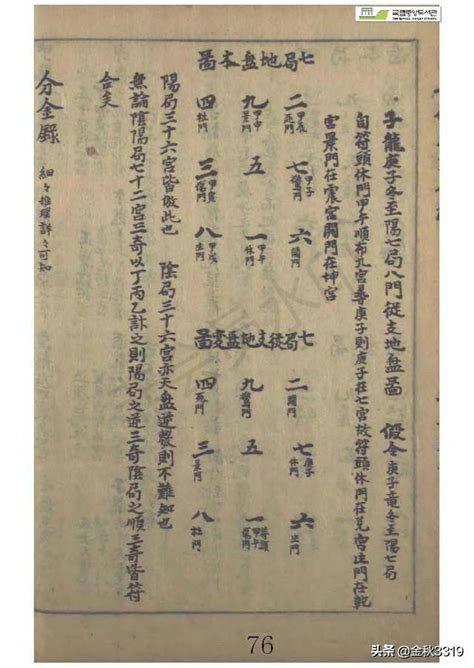 국립중앙도서관
子龍庚子冬至陽七局八門從支地盤圖 假令庚子竜冬至陽七局
自符頭休門甲午順布九宮尋庚子則庚子在七宮故符頭休門在兌宮生門在乾
宮景門在震宮開門在坤宮
七局地盤本圖
二 甲辰 死門
七 甲子 驚門
六 開門
九 甲申 景門
五
一 甲午 休門
四 杜門
三 甲寅 傷門
八 甲戌 生門
七局從支地盤變圖
二 開門
七 庚子 休門
六 生門
九 驚門
五
一 符頭 甲午 傷門
四 死門
三 景門
八 杜門
陽局三十六宮皆倣此也 陰局三十六宮亦天盤逆數則不難知也
無論陰陽局七十二宮三奇以丁丙乙計之則陽局之逆三奇陰局之順三奇皆符
合矣
分金錄 細々推理詳々可知
76
头条 @金秋3319